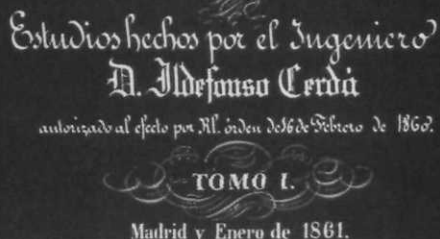 Estudios hechos por el Ingeniero
D. Ildefonso Cerdá
autorizado al efecto por Rl. órden de 16 de Febrero de 1860.
TOMO I.
Madrid y Enero de 1861.